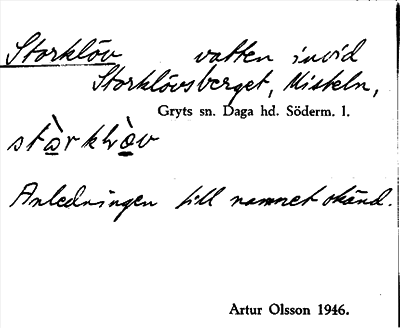 Storklöv vatten invid
Storklövsberget, Miskeln,
Gryts sn. Daga hd. Söderm. l.
Anledningen till namnet okänd.
Artur Olsson 1946.